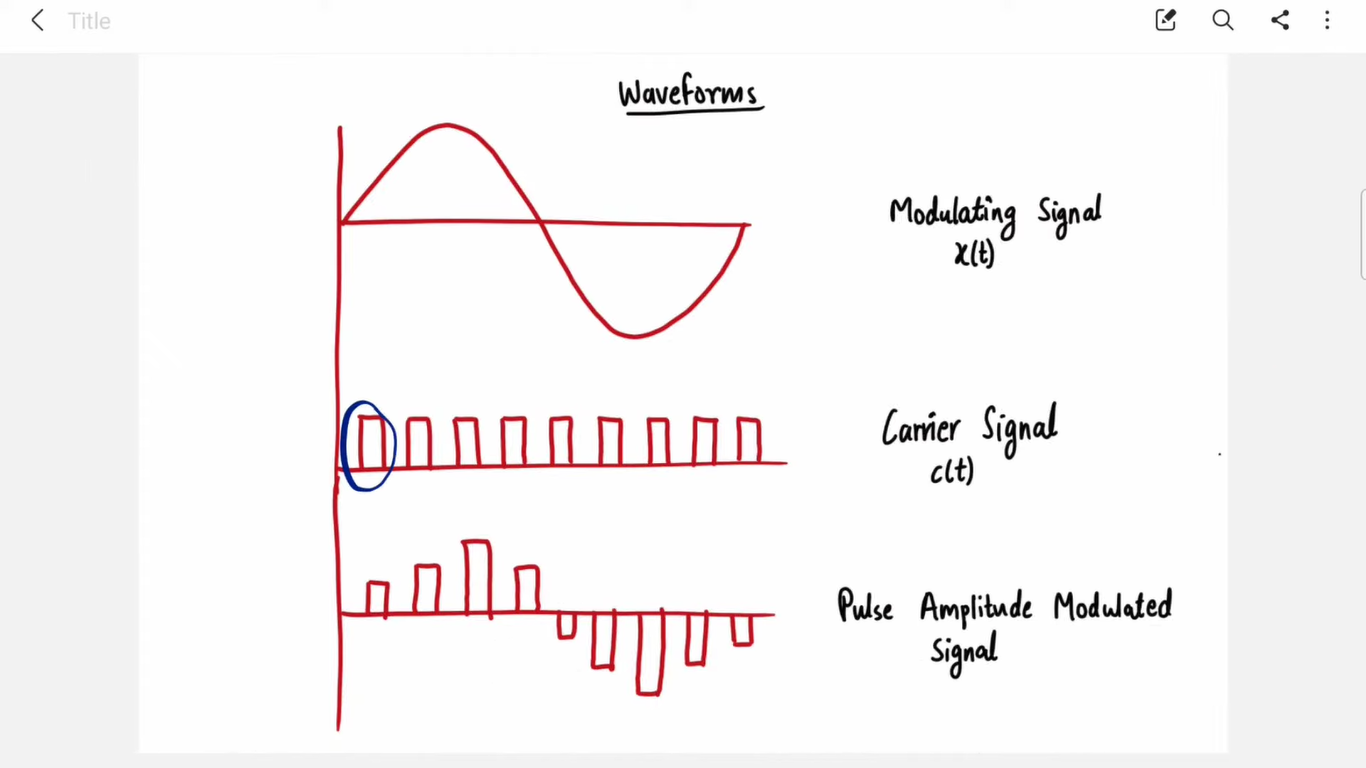 Title
Waveforms
Modulating Signal
x(t)
Carrier Signal
c(t)
Pulse Amplitude Modulated
Signal